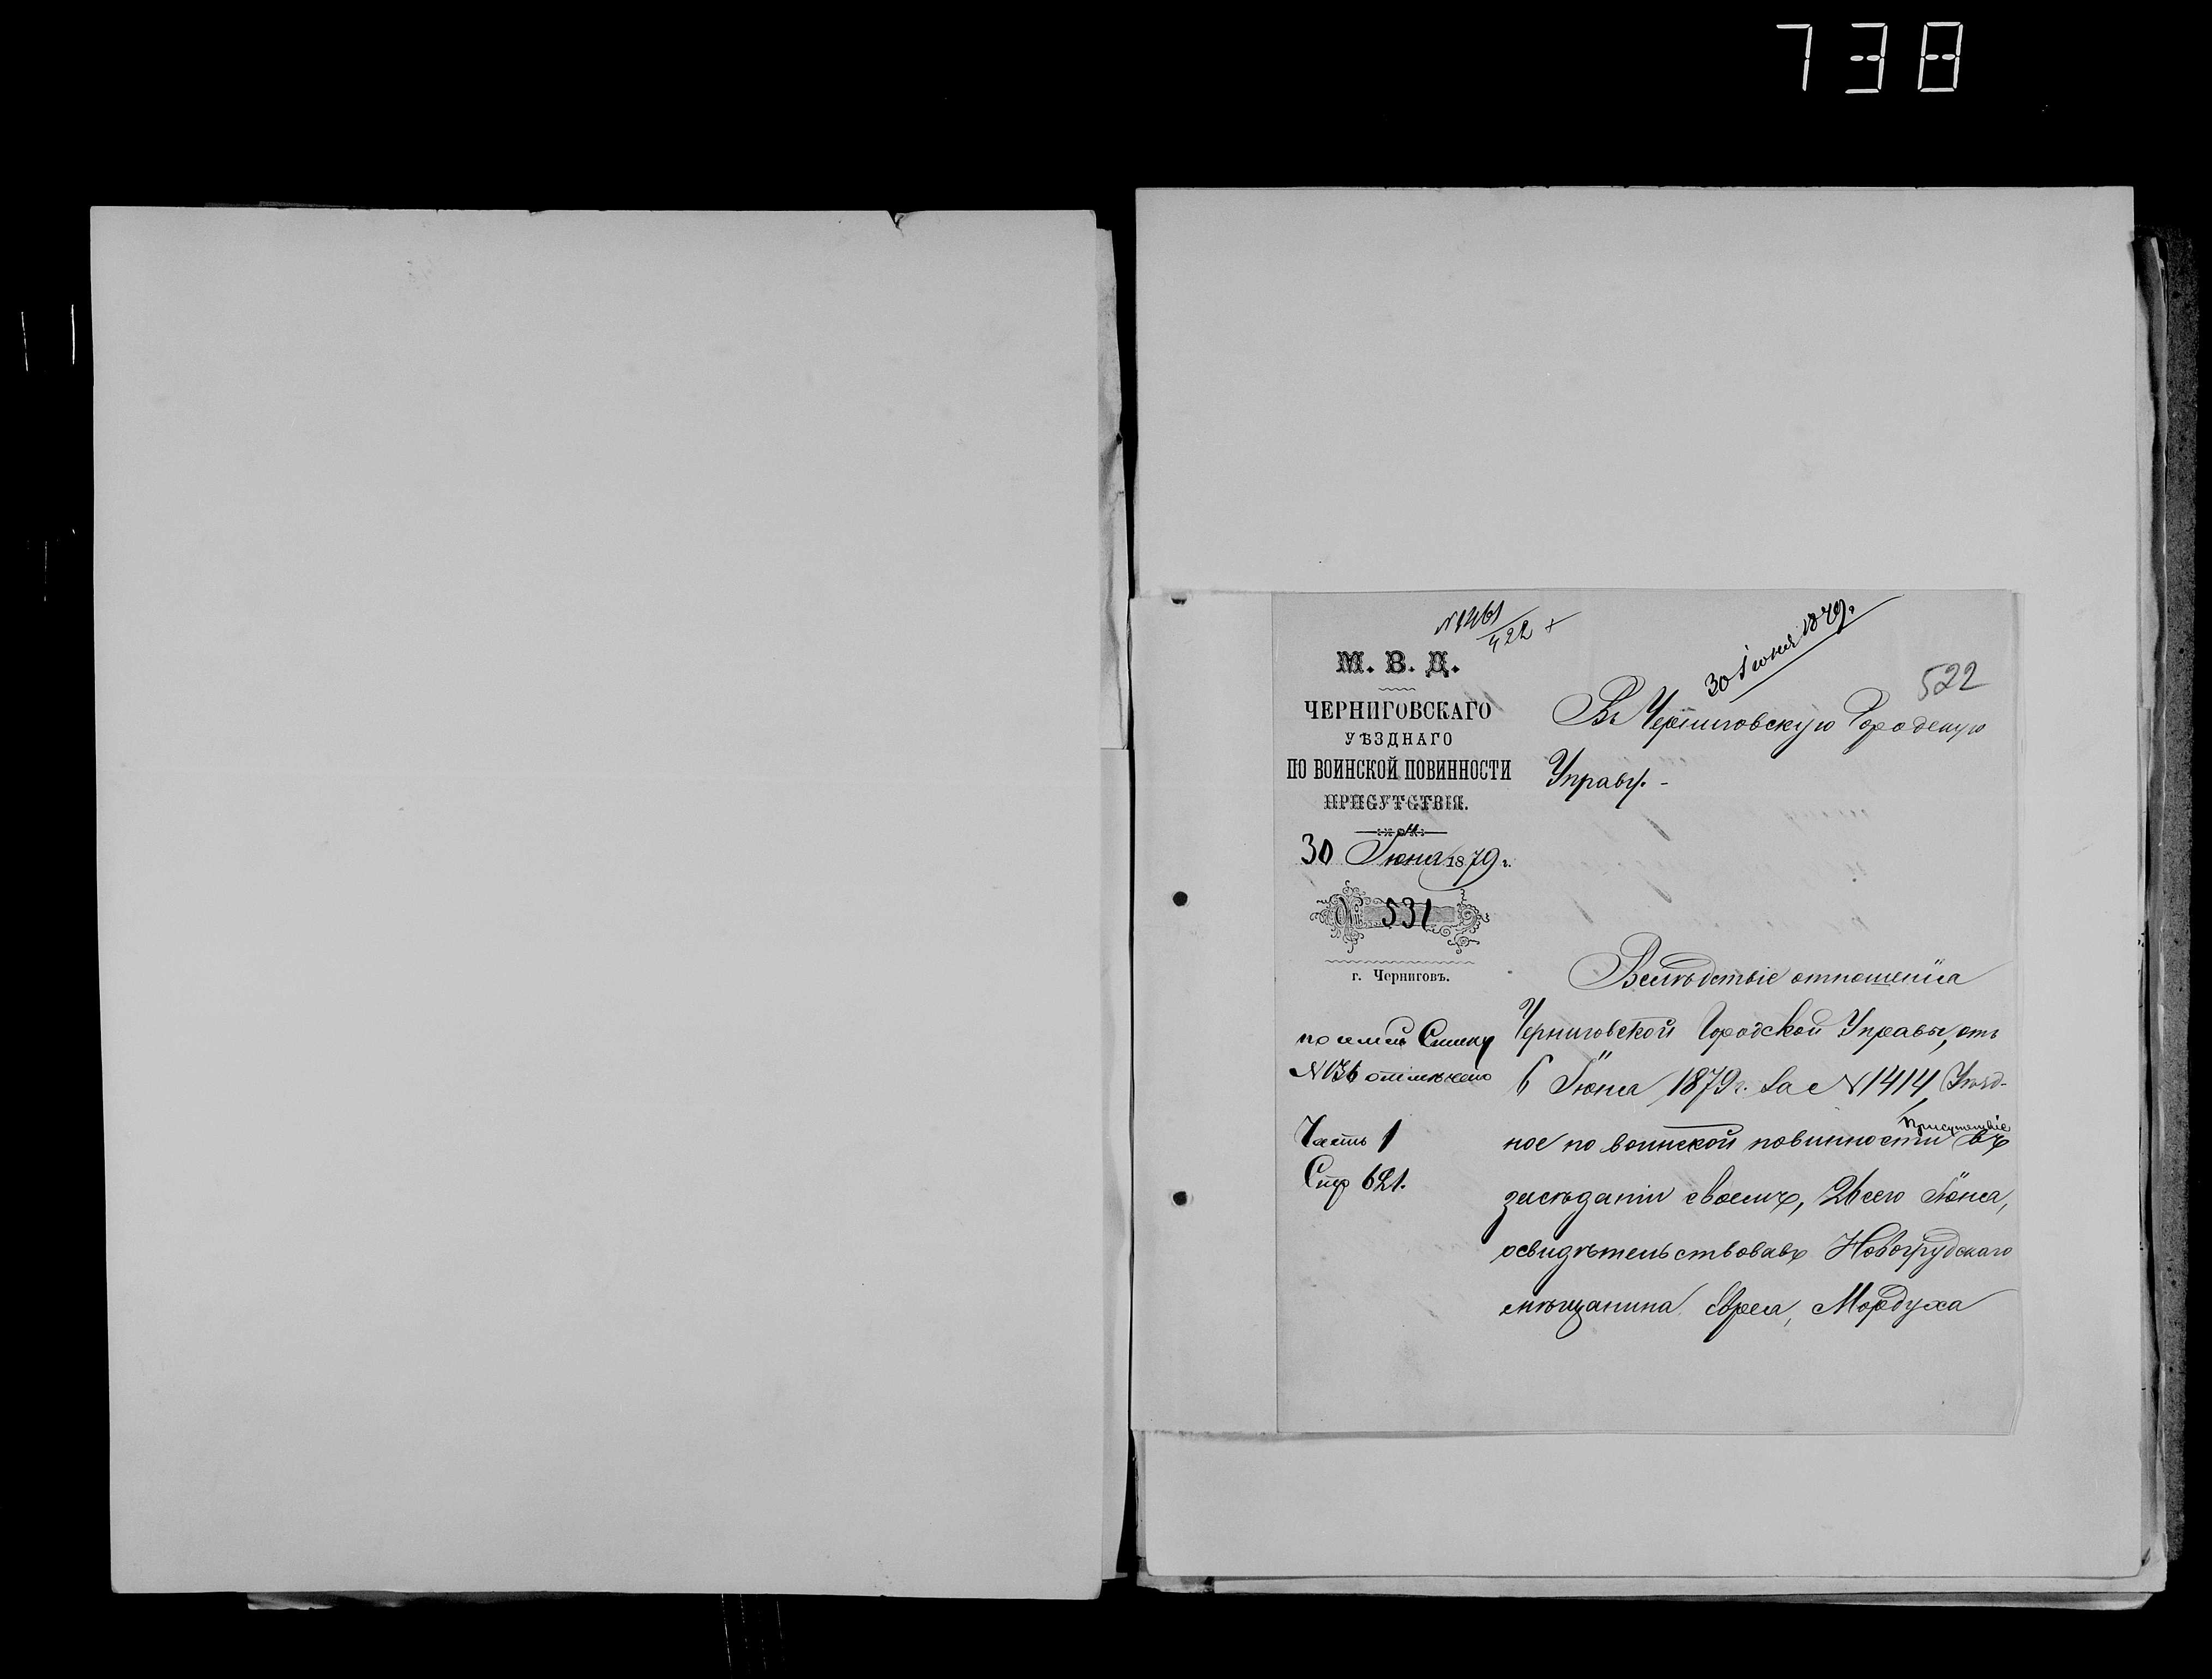 738
№ 1461
422 +
30 Іюня 1879.
522
М. В. Д.
ЧЕРНИГОВСКАГО
УѢЗДНАГО
ПО ВОИНСКОЙ ПОВИННОСТИ
ПРИСУТСТВІЯ.
30 Іюня 1879 г.
№ 531
г. Черниговъ.
по семей Списку
№ 136 отмѣчено
Часть 1
Стр 621.
Въ Черниговскую Городскую
Управу. -
Вслѣдствіе отношенія
Черниговской Городской Управы, отъ
6 Іюня 1879 г. за № 1414, Уѣзд-
ное по воинской повинности Присутствіе въ
засѣданіи своемъ, 26 сего Іюня,
освидѣтельствовавъ Новогрудскаго
мѣщанина еврея, Мордуха